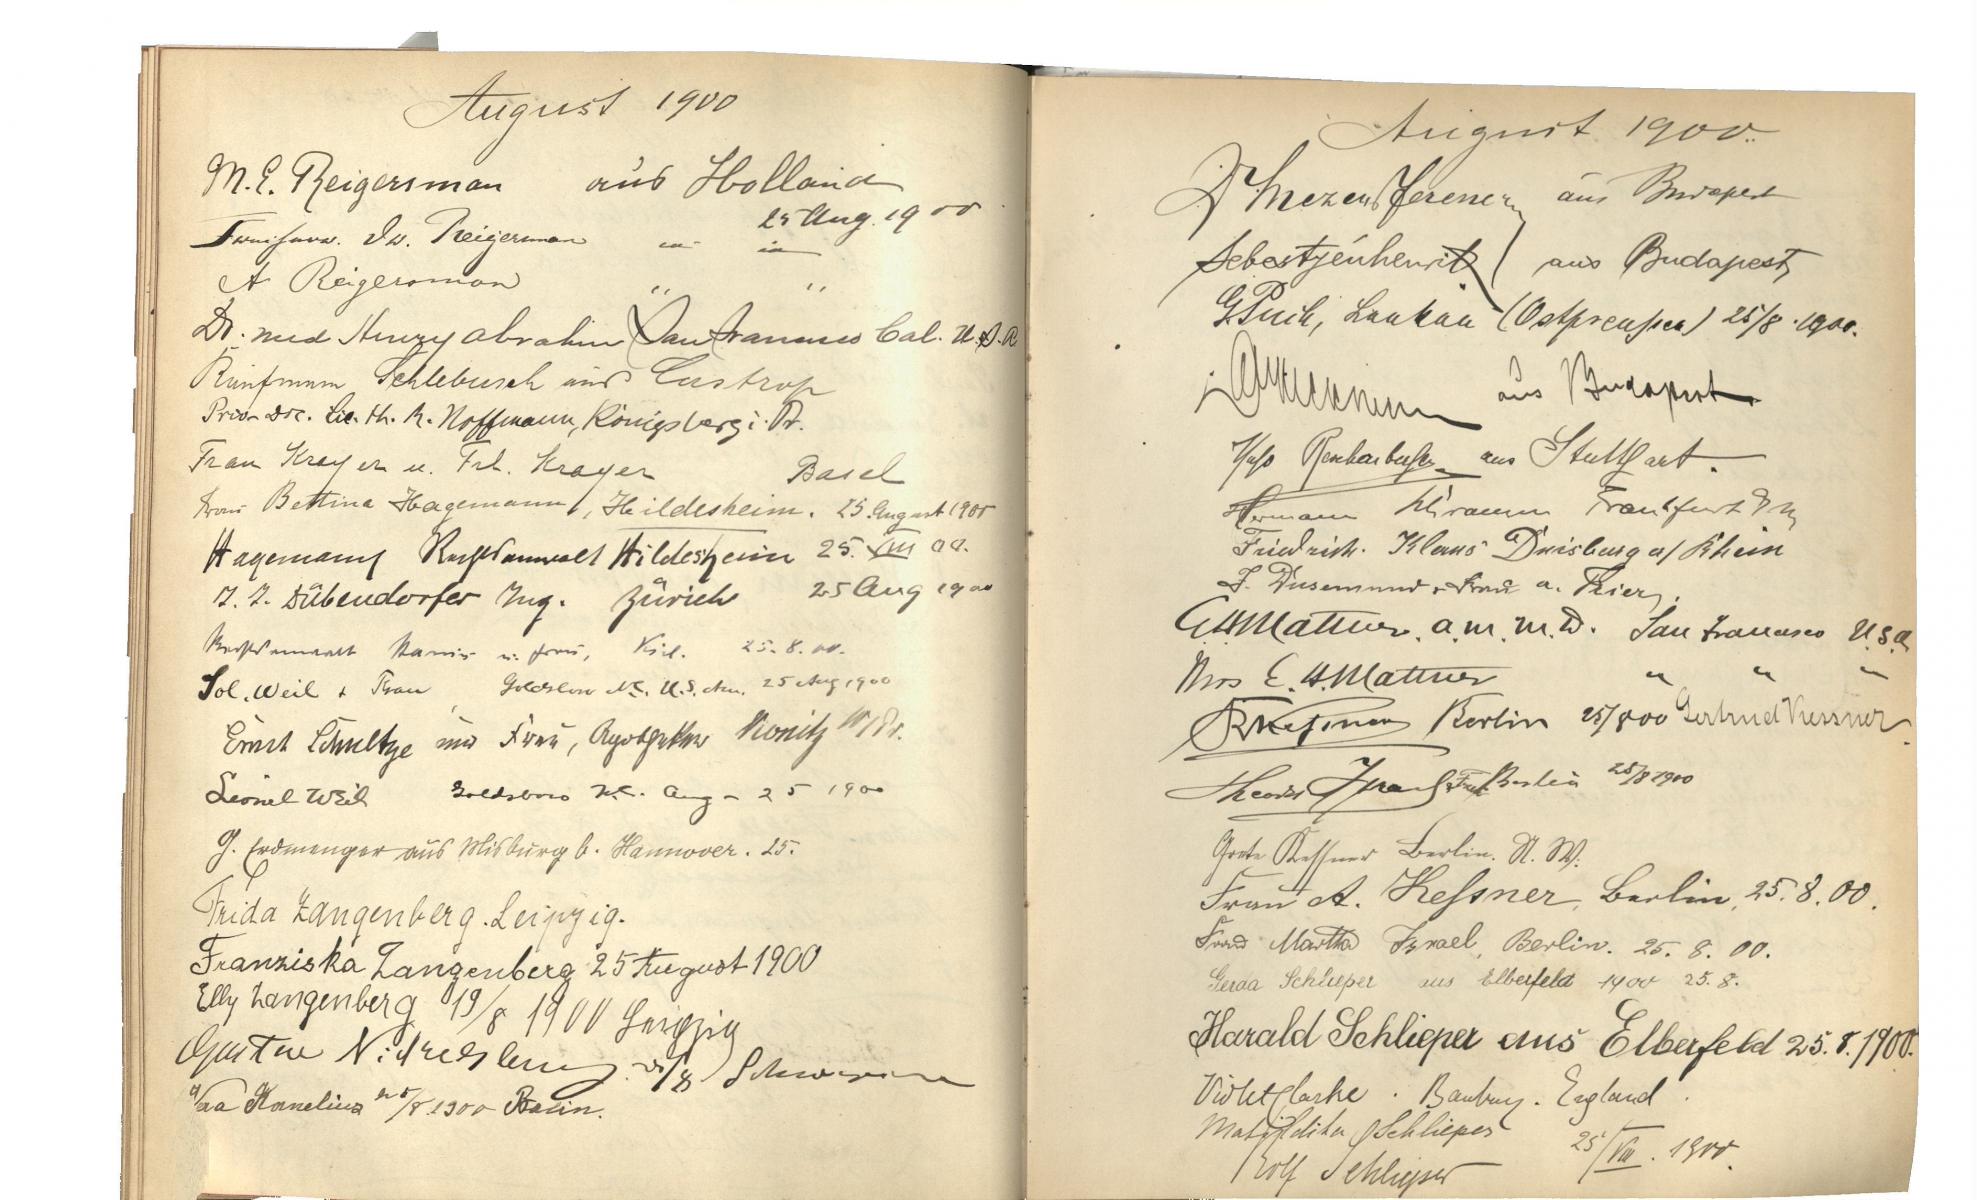 August 1900
M. E. Reigersman aus Holland
25 Aug. 1900
Reigersman
A Reigersman " "
Dr. med Henry Abrahm San Francisco Cal. U.S.A
Schlebusch aus Castrop
Priv. Doc. Lic. th. R. Hoffmann, Königsberg i. Pr.
Frau Krayer u. Frl. Krayer Basel
Frau Bettina Hagemann, Hildesheim. 25. August 1900
Hagemann Rechtsanwalt Hildesheim 25. VIII 00.
J. J. Dübendorfer Ing. Zürich 25 Aug 1900
Rechtsanwalt u. Frau, Kiel. 25.8.00.
Sol. Weil + Frau Goldsboro N.C. U.S. Am. 25 Aug 1900
Ernst Schultze und Frau, Konitz W/Pr.
Lionel Weil Goldsboro N.C. Aug - 25 1900
G. Erdmenger aus Misburg b. Hannover. 25.
Frida Zangenberg. Leipzig.
Franziska Zangenberg 25 August 1900
Elly Zangenberg 19/8 1900 Leipzig
Gustav /8
Kornelius 25/8.1900 Berlin.
August 1900.
Dr aus Budapest
aus Budapest
(Ostpreußen) 25/8.1900.
aus Budapest
aus Stuttgart.
Hermann Frankfurt
Friedrich. Klaus Duisburg a/Rhein
J. Dusemund u Frau a. Trier.
E H Mattner. A.M. M.D. San Francisco U.S.A
Mrs E. H. Mattner " " "
Berlin 25/8 00 Gertrud Kessner.
Theodor Berlin 25/8 1900
Grete Keßner Berlin. N. W.
Frau A. Keßner, Berlin, 25.8.00.
Frau Martha Israel, Berlin. 25.8.00.
Gerda Schlieper aus Elberfeld 1900 25.8.
Harald Schlieper aus Elberfeld 25.8.1900.
Violet Clarke. Banbury. England.
Schlieper
25/VIII. 1900.
Rolf Schlieper